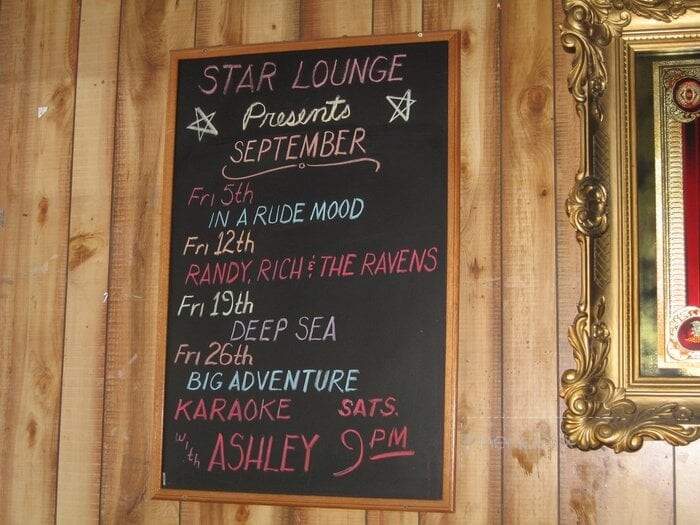 STAR LOUNGE
Presents
SEPTEMBER
Fri 5th
IN A RUDE MOOD
Fri 12th
RANDY, RICH & THE RAVENS
Fri 19th
DEEP SEA
Fri 26th
BIG ADVENTURE
KARAOKE SATS.
with ASHLEY 9PM